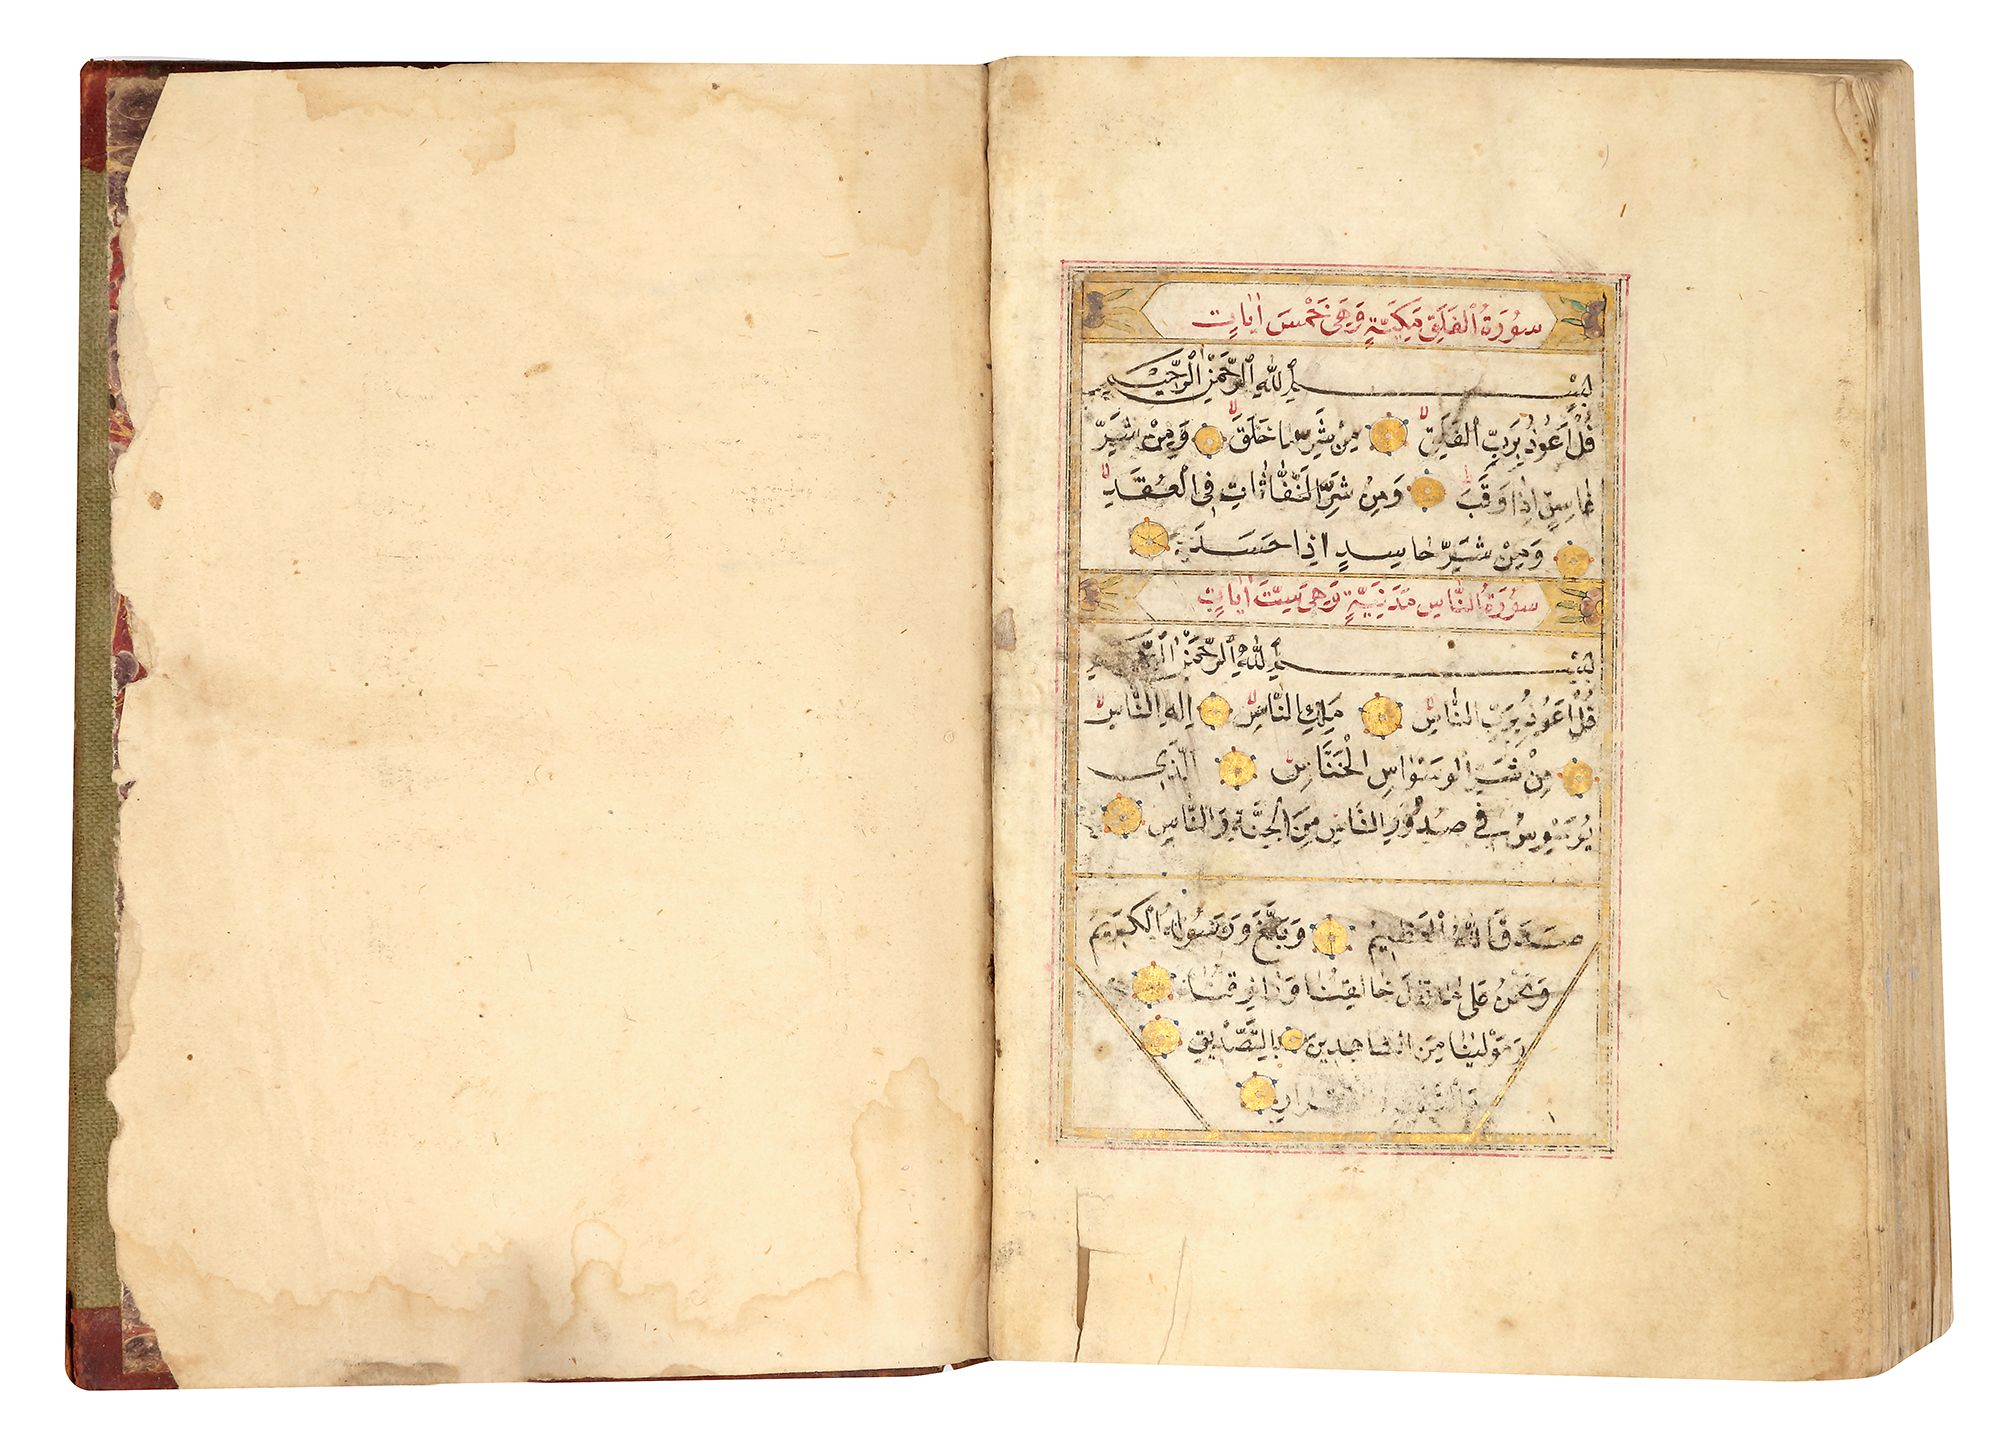 سُورَةُ الْفَلَقِ مَكِّيَّةٍ وَهِىَ خَمْسَ اٰيَاتٍ
بِسْمِ اللّٰهِ الرَّحْمٰنِ الرَّحِيْمِ
قُلْ اَعُوْذُ بِرَبِّ الْفَلَقِ مِنْ شَرِّ مَا خَلَقَ وَمِنْ شَرِّ
غَاسِقٍ اِذَا وَقَبَ وَمِنْ شَرِّ النَّفَّاثَاتِ فِى الْعُقَدِ
وَمِنْ شَرِّ حَاسِدٍ اِذَا حَسَدَ
سُورَةُ النَّاسِ مَدَنِيَّةٍ وَهِىَ سِتَّ اٰيَاتٍ
بِسْمِ اللّٰهِ الرَّحْمٰنِ
قُلْ اَعُوْذُ بِرَبِّ النَّاسِ مَلِكِ النَّاسِ اِلٰهِ النَّاسِ
مِنْ شَرِّ الْوَسْوَاسِ الْخَنَّاسِ الَّذِى
يُوَسْوِسُ فِى صُدُوْرِ النَّاسِ مِنَ الْجِنَّةِ وَالنَّاسِ
صَدَقَ اللّٰهُ الْعَظِيْمُ وَبَلَّغَ رَسُوْلُهُ الْكَرِيْمُ
وَنَحْنُ عَلٰى مَا قَالَ خَالِقُنَا وَرَازِقُنَا
وَمَوْلَيْنَا مِنَ الشَّاهِدِيْنَ بِالتَّصْدِيْقِ